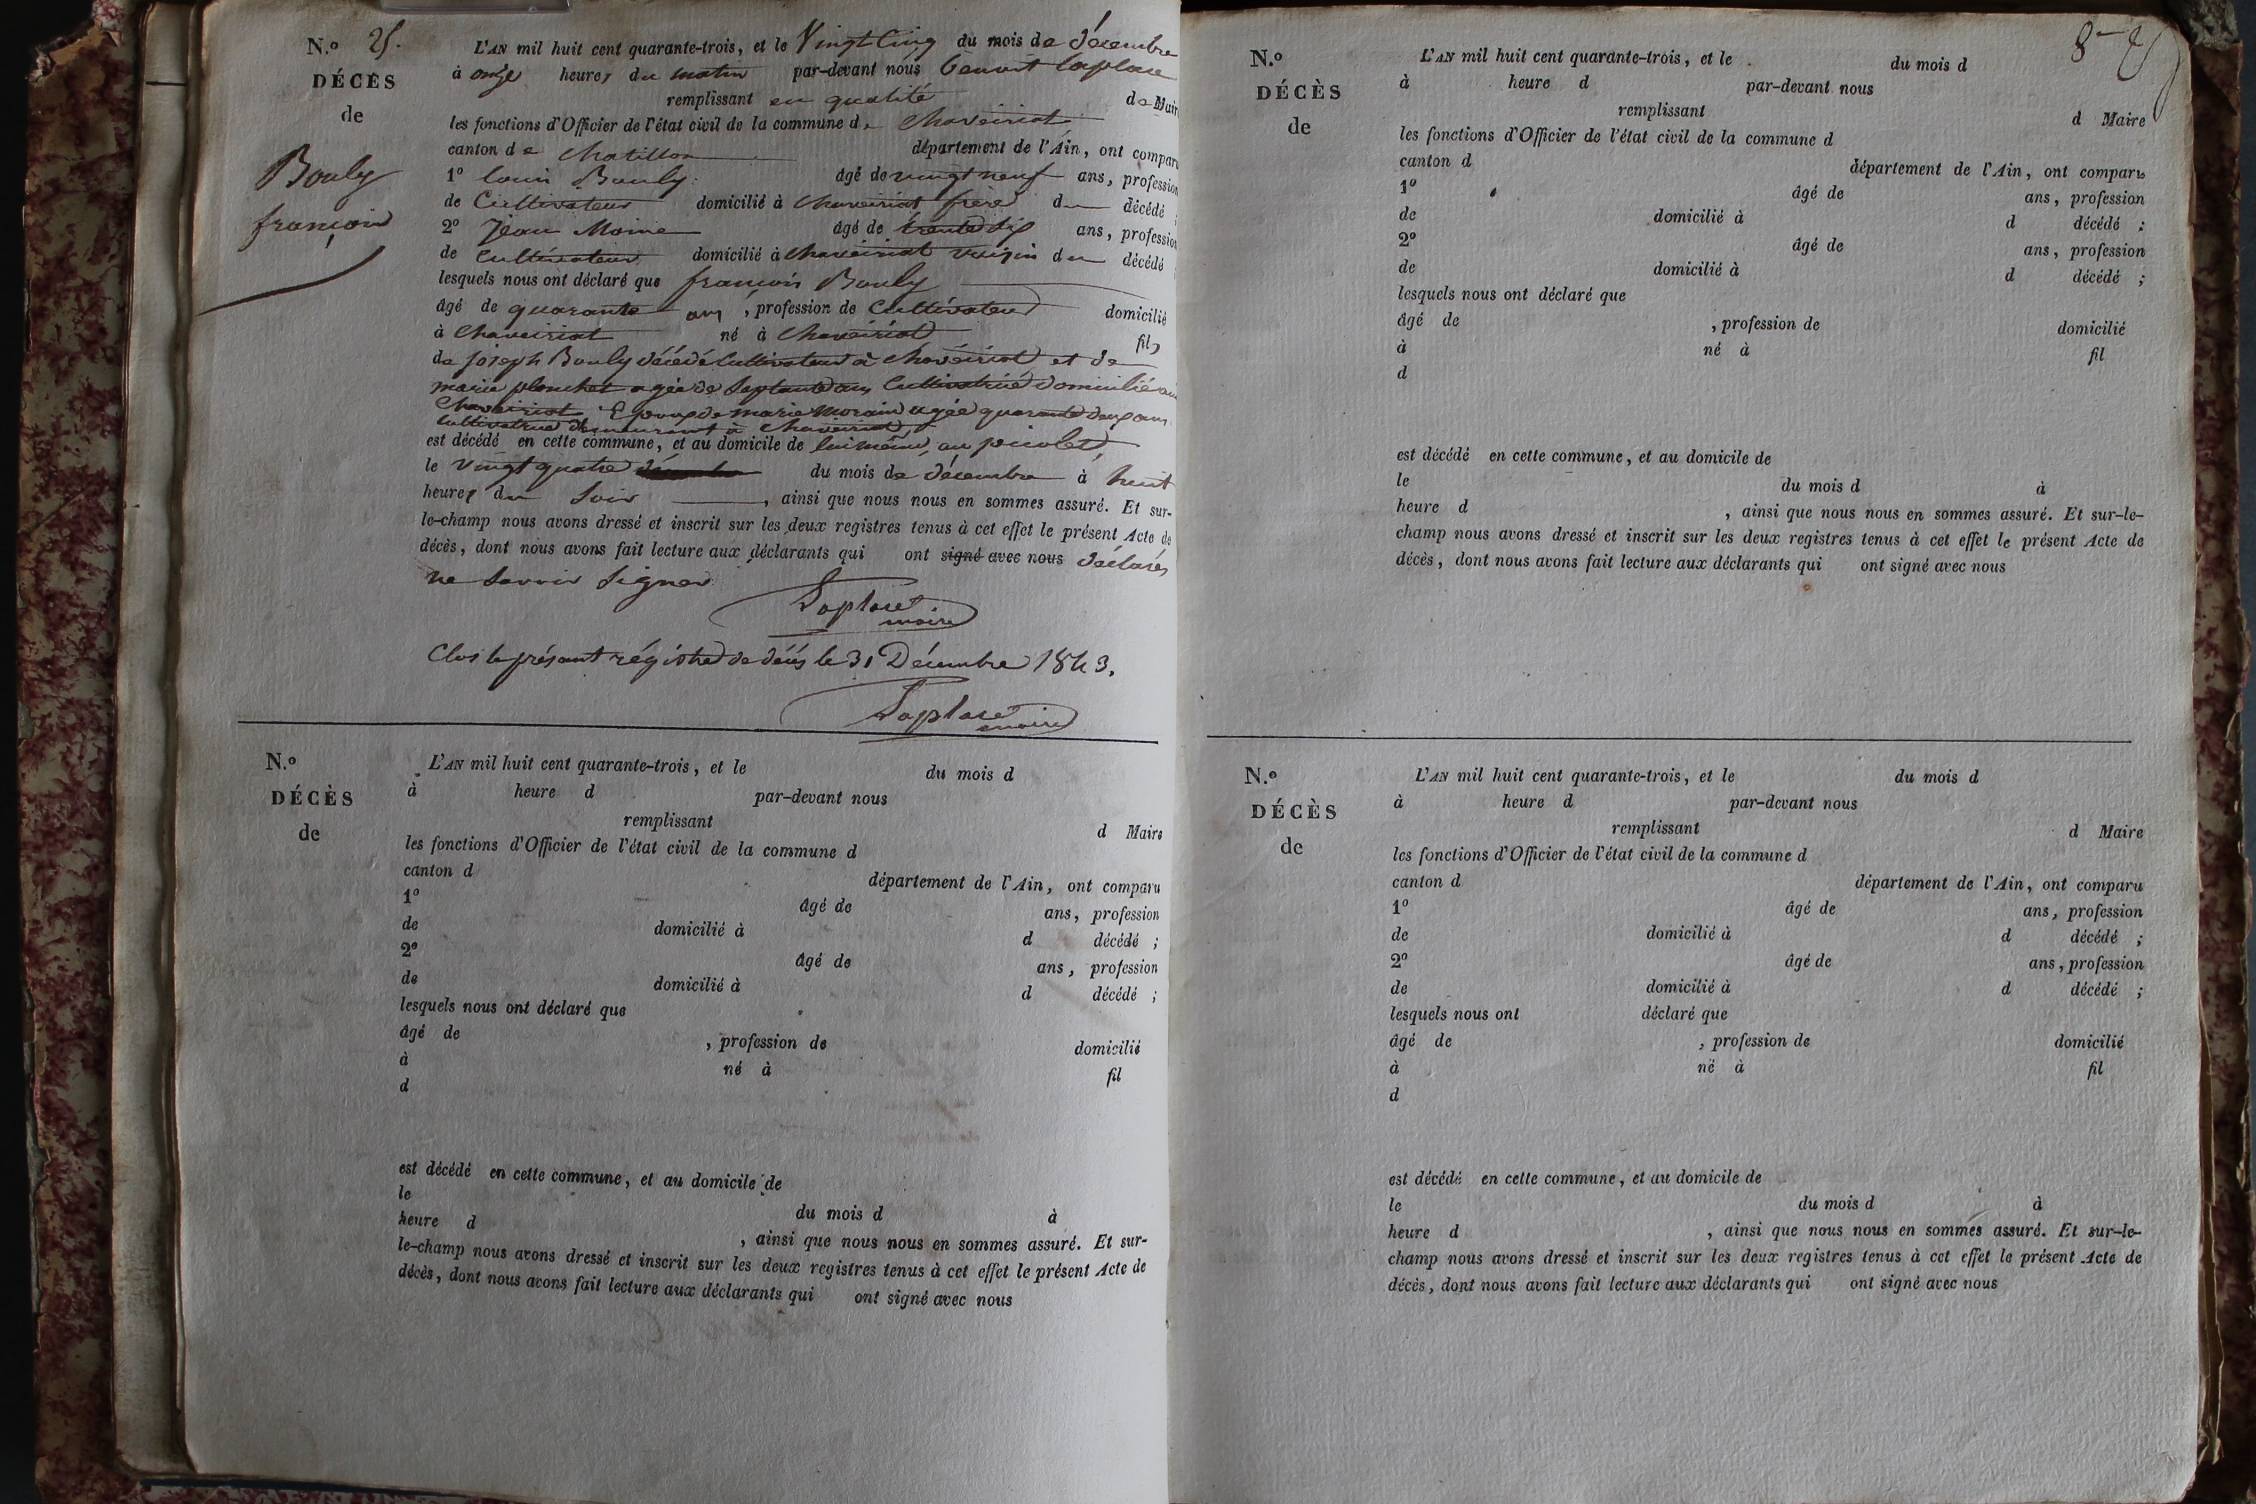 N.o 25.
DÉCÈS
de
Bouly
françois
L'AN mil huit cent quarante-trois, et le Vingt Cinq du mois de décembre
à onze heures du matin par-devant nous Benoit Laplace
remplissant en qualité de Maire
les fonctions d'Officier de l'état civil de la commune de Chaveiriat
canton de Chatillon département de l'Ain, ont comparu
1o Louis Bouly âgé de vingt neuf ans, profession
de Cultivateur domicilié à Chaveiriat frère du décédé ;
2o Jean Moine âgé de trente six ans, profession
de Cultivateur domicilié à Chaveiriat voisin du décédé
lesquels nous ont déclaré que françois Bouly
âgé de quarante ans, profession de Cultivateur domicilié
à Chaveiriat né à Chaveiriat fils
de joseph Bouly décédé Cultivateur à Chavéiriat et de
marie planchet agée de Septante ans Cultivatrice domiciliée au
Chaveiriat Epoux de marie Morain agée quarante deux ans
Cultivatrice demeurant à Chaveiriat
est décédé en cette commune, et au domicile de lui même, au picolet,
le vingt quatre du mois de décembre à huit
heures du Soir, ainsi que nous nous en sommes assuré. Et sur-
le-champ nous avons dressé et inscrit sur les deux registres tenus à cet effet le présent Acte de
décès, dont nous avons fait lecture aux déclarants qui ont signé avec nous déclarés
ne Savoir Signer
Laplace
maire
Clos le présent régistre de décès le 31 Décembre 1843.
Laplace
maire
N.o
DÉCÈS
de
L'AN mil huit cent quarante-trois, et le du mois d
à heure d par-devant nous
remplissant d Maire
les fonctions d'Officier de l'état civil de la commune d
canton d département de l'Ain, ont comparu
1o âgé de ans, profession
de domicilié à d décédé ;
2o âgé de ans, profession
de domicilié à d décédé ;
lesquels nous ont déclaré que
âgé de , profession de domicilié
à né à fil
d
est décédé en cette commune, et au domicile de
le du mois d à
heure d , ainsi que nous nous en sommes assuré. Et sur-
le-champ nous avons dressé et inscrit sur les deux registres tenus à cet effet le présent Acte de
décès, dont nous avons fait lecture aux déclarants qui ont signé avec nous
8
N.o
DÉCÈS
de
L'AN mil huit cent quarante-trois, et le du mois d
à heure d par-devant nous
remplissant d Maire
les fonctions d'Officier de l'état civil de la commune d
canton d département de l'Ain, ont comparu
1o âgé de ans, profession
de domicilié à d décédé ;
2o âgé de ans, profession
de domicilié à d décédé ;
lesquels nous ont déclaré que
âgé de , profession de domicilié
à né à fil
d
est décédé en cette commune, et au domicile de
le du mois d à
heure d , ainsi que nous nous en sommes assuré. Et sur-le-
champ nous avons dressé et inscrit sur les deux registres tenus à cet effet le présent Acte de
décès, dont nous avons fait lecture aux déclarants qui ont signé avec nous
N.o
DÉCÈS
de
L'AN mil huit cent quarante-trois, et le du mois d
à heure d par-devant nous
remplissant d Maire
les fonctions d'Officier de l'état civil de la commune d
canton d département de l'Ain, ont comparu
1o âgé de ans, profession
de domicilié à d décédé ;
2o âgé de ans, profession
de domicilié à d décédé ;
lesquels nous ont déclaré que
âgé de , profession de domicilié
à né à fil
d
est décédé en cette commune, et au domicile de
le du mois d à
heure d , ainsi que nous nous en sommes assuré. Et sur-le-
champ nous avons dressé et inscrit sur les deux registres tenus à cet effet le présent Acte de
décès, dont nous avons fait lecture aux déclarants qui ont signé avec nous